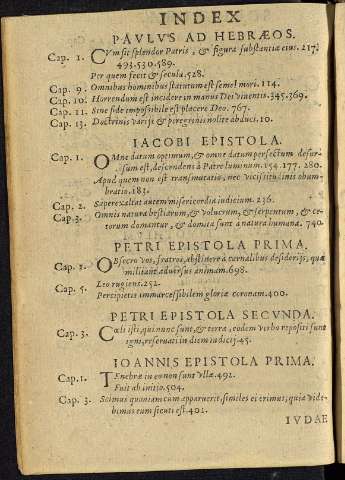 INDEX
PAVLVS AD HEBRÆOS.
Cap. 1. CVm sit splendor Patris, & figura substantiæ eius. 217.
493.530.589.
Per quem fecit & secula. 528.
Cap. 9. Omnibus hominibus statutum est semel mori. 114.
Cap. 10. Horrendum est incidere in manus Dei viventis. 345.369.
Cap. 11. Sine fide impossibile est placere Deo. 767.
Cap. 13. Doctrinis varijs & peregrinis nolite abduci. 10.
IACOBI EPISTOLA.
Cap. 1. OMne datum optimum, & omne datum perfectum desur-
sum est, descendens à Patre luminum. 154.177. 280.
Apud quem non est transmutatio, nec vicissitudinis obum-
bratio. 183.
Cap. 2. Superexaltat autem misericordia iudicium. 236.
Cap. 3. Omnis natura bestiarum, & volucrum, & serpentum, & ce-
torum domantur, & domita sunt a natura humana. 740.
PETRI EPISTOLA PRIMA.
Cap. 1. OBsecro vos, fratres, abstinere à carnalibus desiderijs, quæ
militant adversus animam. 698.
Leo rugiens. 252.
Cap. 5. Percipietis immarcessibilem gloriæ coronam. 400.
PETRI EPISTOLA SECVNDA.
Cap. 3. COEli isti, qui nunc sunt, & terra, eodem verbo repositi sunt
igni, reservati in diem iudicij. 45.
IOANNIS EPISTOLA PRIMA.
Cap. 1. TEnebræ in eo non sunt vllæ. 492.
Fuit ab initio. 504.
Cap. 3. Scimus quoniam cum apparuerit, similes ei erimus, quia vide-
bimus eum sicuti est. 402.
IVDAE